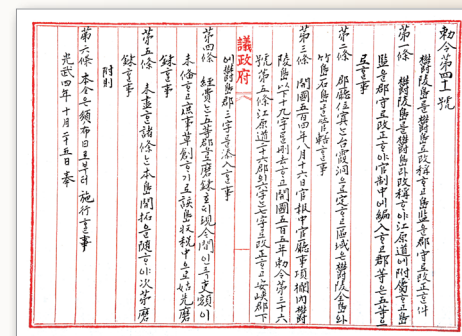 勅令第四十一號
鬱陵島를鬱島로改稱하고島監을郡守로改正한件
第一條 鬱陵島를鬱島라改稱하야江原道에附屬하고島
監을郡守로改正하야官制中에編入하고郡等은五等으
로할事
第二條 郡廳位寘는台霞洞으로定하고區域은鬱陵全島와
竹島石島를管轄할事
第三條 開國五百四年八月十六日官報中官廳事項欄內鬱
陵島以下十九字를刪去하고開國五百五年勅令第三十六
號第五條江原道二十六郡의六字는七字로改正하고安峽郡下
에鬱島郡三字를添入할事
第四條 經費는五等郡으로磨鍊호되現今間인즉吏額이
未備하고庶事草創하기로該島收稅中으로姑先磨
鍊할事
第五條 未盡한諸條는本島開拓을隨하야次第磨
鍊할事
附則
第六條 本令은頒布日로부터施行할事
光武四年十月二十五日奉
議政府